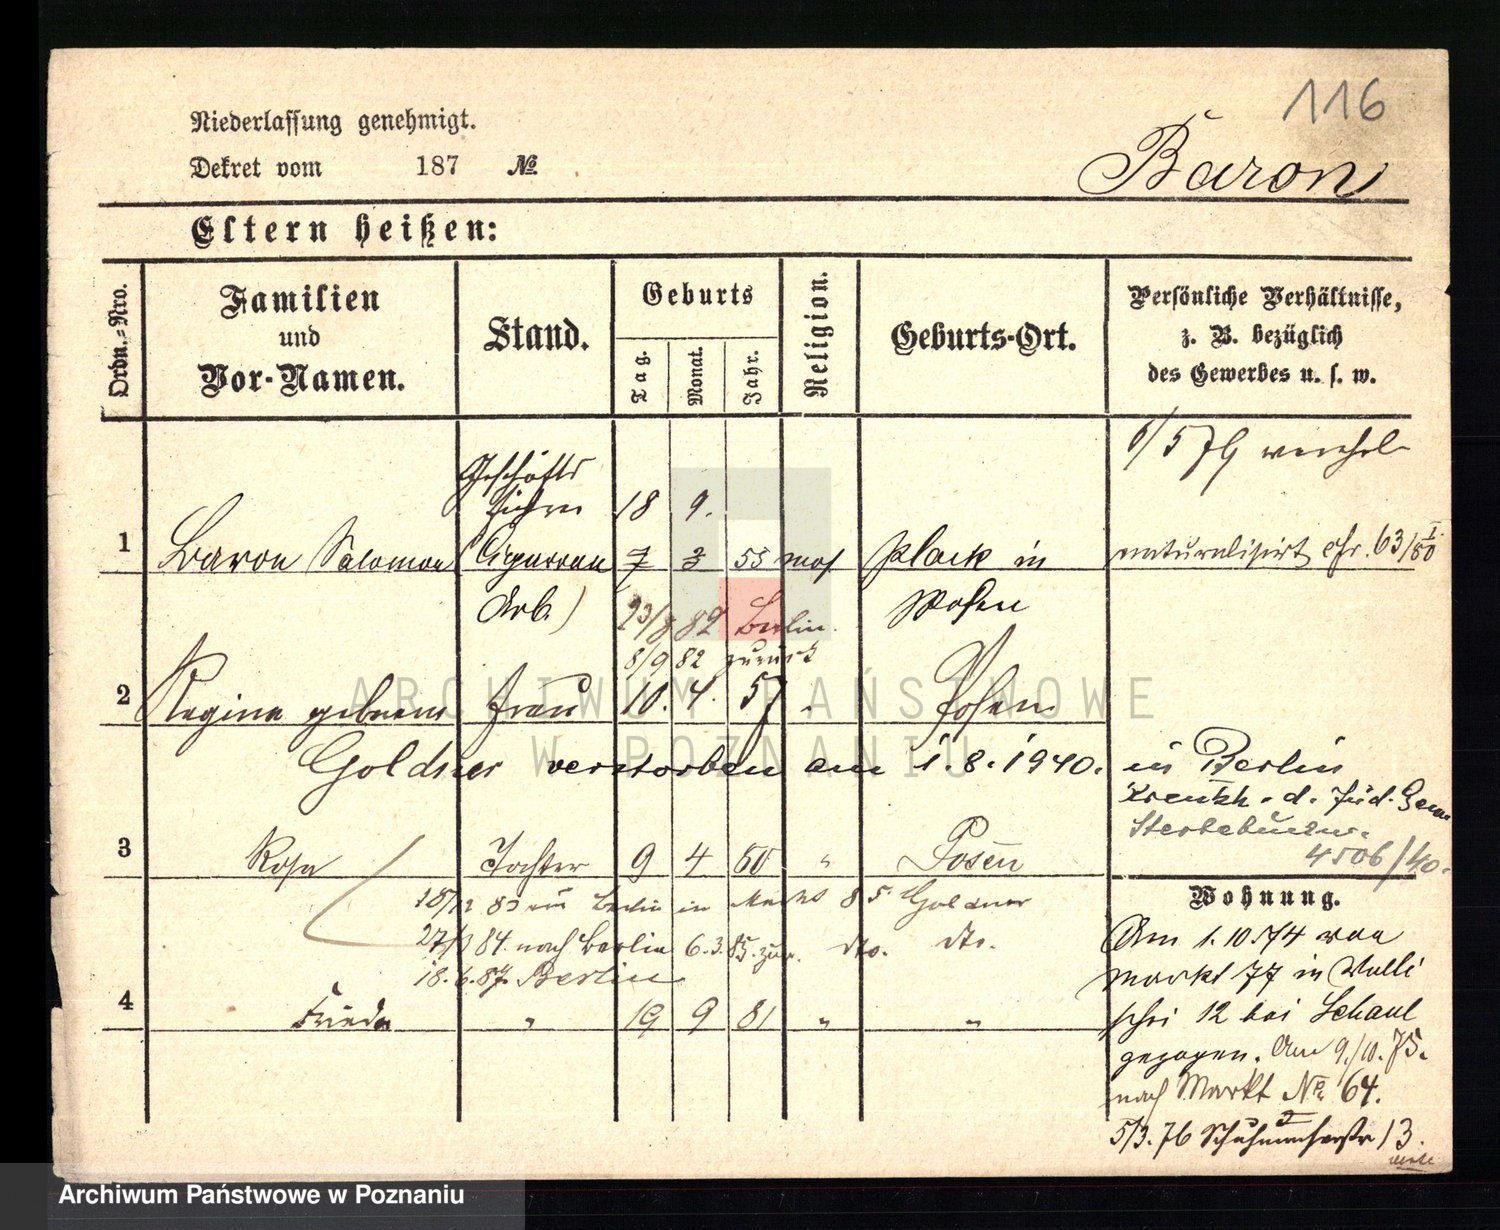 116
Niederlassung genehmigt.
Dekret vom 187 №
Baron
Eltern heißen:
Ordn.-Nro.
Familien und Vor-Namen.
Stand.
Geburts
Tag.
Monat.
Jahr.
Religion.
Geburts-Ort.
Persönliche Verhältnisse,
z. B. bezüglich
des Gewerbes u. s. w.
Geschäfts
18 9.
1 Baron Salomon (Cigarren 7 3 53 mos Plock in naturalisirt cfr. 63/
Arb.) Polen
23/8 82 Berlin.
8/9 82 zurück
2 Regina geborene Frau 10. 4. 57 Posen
Goldner verstorben am 1.8.1940. in Berlin
d. Jüd. Gem
4506/40.
3 Rosa Tochter 9 4 80 " Posen
Berlin in 85 Goldner
84 nach Berlin 6.3.85. zur. dto. dto.
18.6.87. Berlin
4 Frieda " 19 9 81 " "
Wohnung.
Am 1.10.74 von
Markt 77 in Walli
schei 12 bei Schaul
gezogen. Am 9./10.75.
nach Markt № 64.
5/3.76 Schuhmacherstr 13.
ARCHIWUM PAŃSTWOWE
W POZNANIU
Archiwum Państwowe w Poznaniu